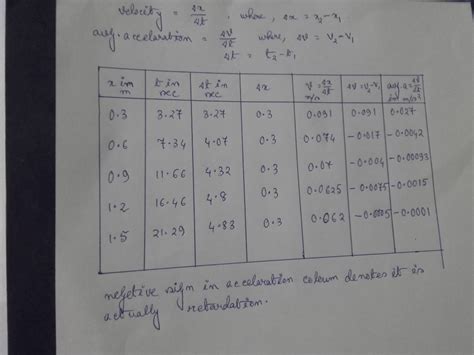 velocity = Δx/Δt, where, Δx = x₂-x₁
avg. accelaration = Δv/Δt where, Δv = v₂-v₁
Δt = t₂-t₁
x in m | t in sec | Δt in sec | Δx | v = Δx/Δt m/s | Δv = v₂-v₁ | avg. a = Δv/Δt in m/s²
0.3 | 3.27 | 3.27 | 0.3 | 0.091 | 0.091 | 0.027
0.6 | 7.34 | 4.07 | 0.3 | 0.074 | -0.017 | -0.0042
0.9 | 11.66 | 4.32 | 0.3 | 0.07 | -0.004 | -0.00033
1.2 | 16.46 | 4.8 | 0.3 | 0.0625 | -0.0075 | -0.0015
1.5 | 21.29 | 4.83 | 0.3 | 0.062 | -0.0005 | -0.0001
negetive sign in accelaration coleum denotes it is
actually retardation.